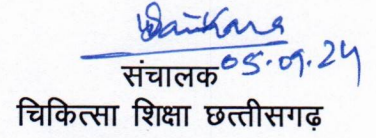 05.09.24
संचालक
चिकित्सा शिक्षा छत्तीसगढ़